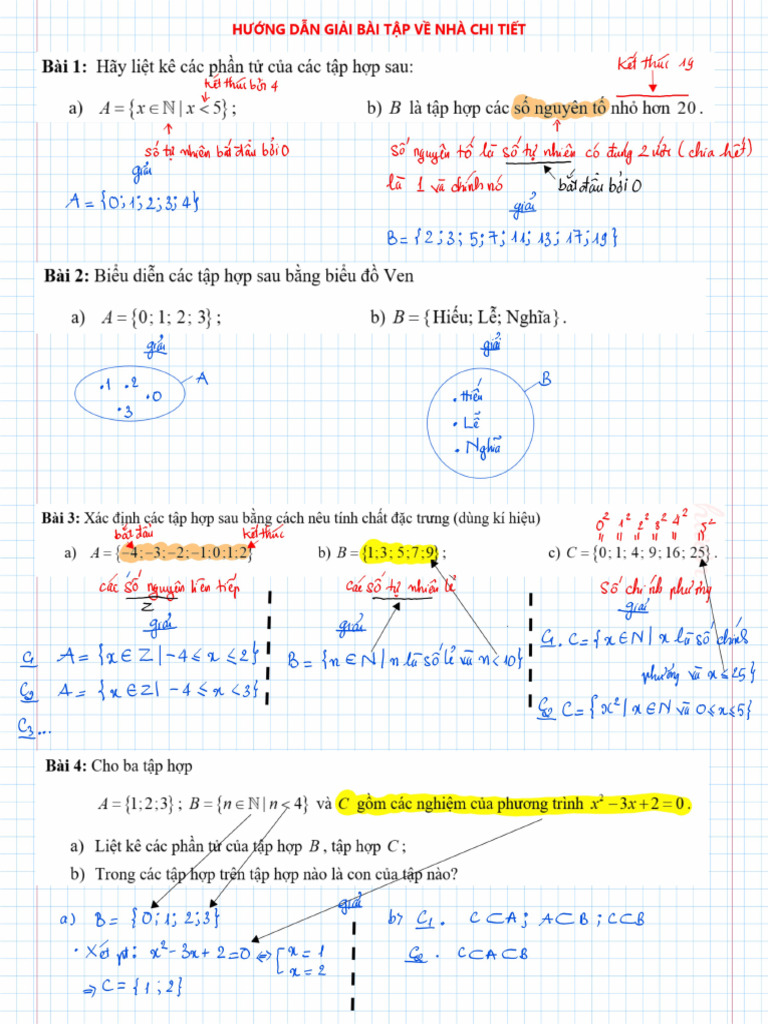 HƯỚNG DẪN GIẢI BÀI TẬP VỀ NHÀ CHI TIẾT
Bài 1: Hãy liệt kê các phần tử của các tập hợp sau:
kết thúc 19
kết thúc bởi 4
a) A = {x ∈ ℕ | x < 5} ;
b) B là tập hợp các số nguyên tố nhỏ hơn 20 .
số tự nhiên bắt đầu bởi 0
số nguyên tố là số tự nhiên có đúng 2 ước (chia hết)
là 1 và chính nó
bắt đầu bởi 0
giải
A = {0; 1; 2; 3; 4}
giải
B = {2; 3; 5; 7; 11; 13; 17; 19}
Bài 2: Biểu diễn các tập hợp sau bằng biểu đồ Ven
a) A = {0; 1; 2; 3} ;
b) B = {Hiếu; Lễ; Nghĩa} .
giải
giải
A
.1 .2
.0
.3
B
. Hiếu
. Lễ
. Nghĩa
Bài 3: Xác định các tập hợp sau bằng cách nêu tính chất đặc trưng (dùng kí hiệu)
0² 1² 2² 3² 4² 5²
bắt đầu
kết thúc
a) A = {−4; −3; −2; −1; 0; 1; 2}
b) B = {1; 3; 5; 7; 9} ;
c) C = {0; 1; 4; 9; 16; 25} .
các số nguyên liên tiếp
Z
giải
C₁ A = {x ∈ Z | −4 ≤ x ≤ 2}
C₂ A = {x ∈ Z | −4 ≤ x < 3}
C₃ ...
các số tự nhiên lẻ
giải
B = {n ∈ N | n là số lẻ và n < 10}
Số chính phương
giải
C₁. C = {x ∈ N | x là số chính
phương và x ≤ 25}
C₂ C = {x² | x ∈ N và 0 ≤ x ≤ 5}
Bài 4: Cho ba tập hợp
A = {1; 2; 3} ; B = {n ∈ ℕ | n < 4} và C gồm các nghiệm của phương trình x² − 3x + 2 = 0 .
a) Liệt kê các phần tử của tập hợp B , tập hợp C ;
b) Trong các tập hợp trên tập hợp nào là con của tập nào?
giải
a) B = {0; 1; 2; 3}
. Xét pt: x² − 3x + 2 = 0 ⇔ [ x = 1
x = 2
⇒ C = {1; 2}
b) C₁ . C ⊂ A ; A ⊂ B ; C ⊂ B
C₂ . C ⊂ A ⊂ B